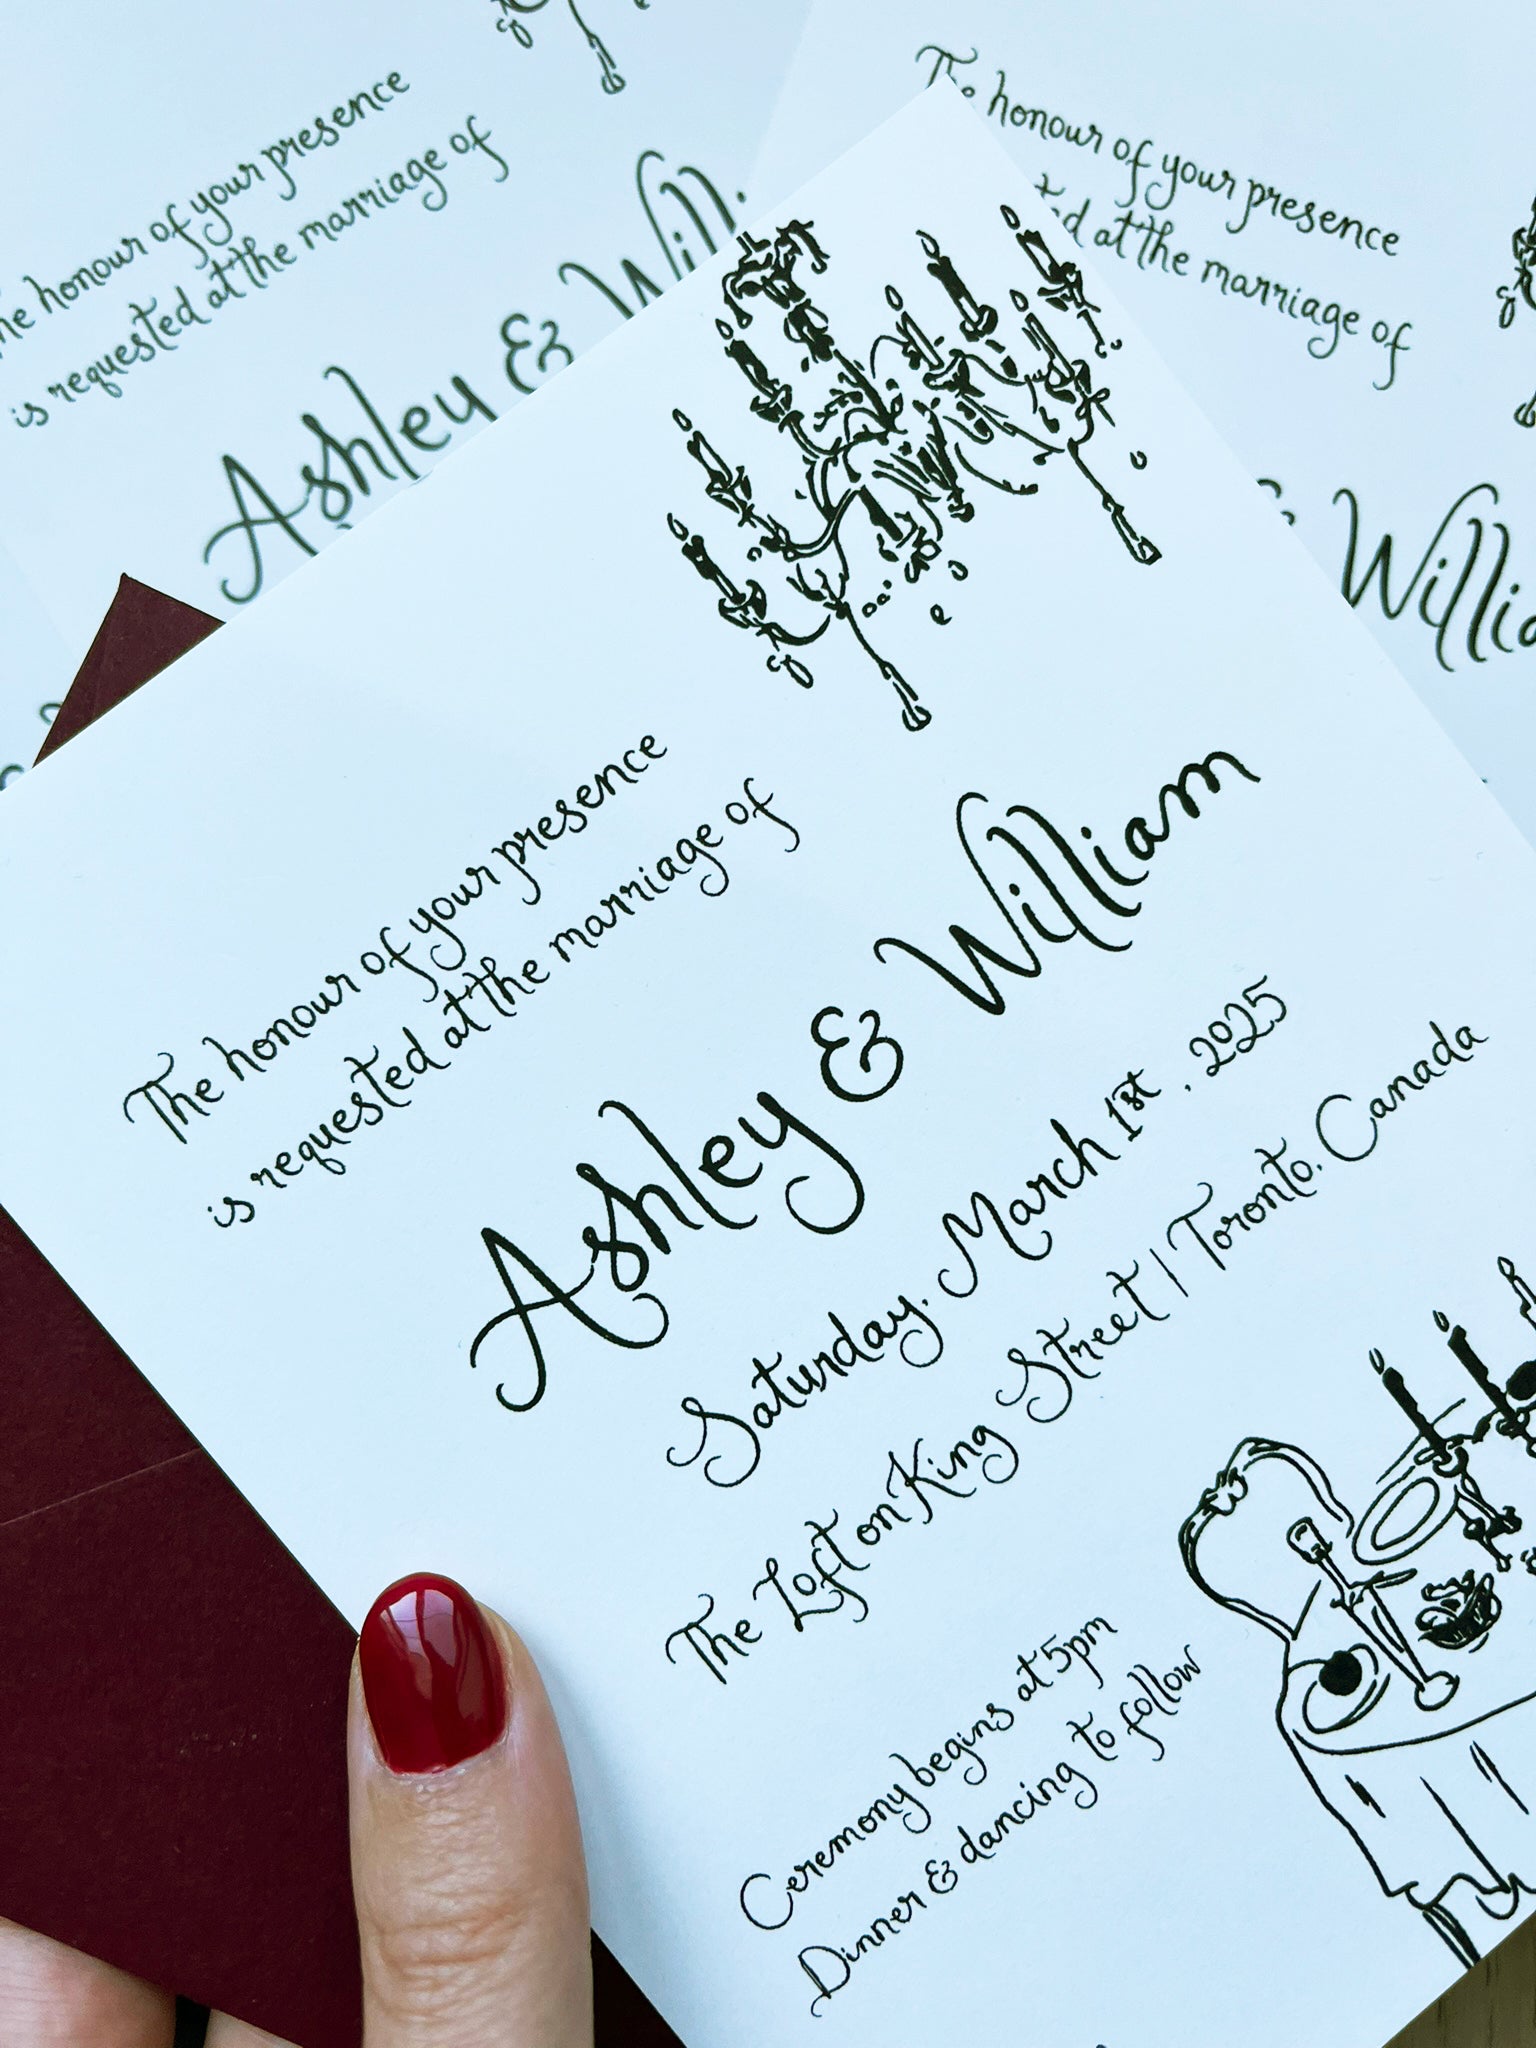 The honour of your presence
is requested at the marriage of
Ashley & Will
The honour of your presence
at the marriage of
Willia
The honour of your presence
is requested at the marriage of
Ashley & William
Saturday, March 1st, 2025
The Loft on King Street | Toronto, Canada
Ceremony begins at 5pm
Dinner & dancing to follow